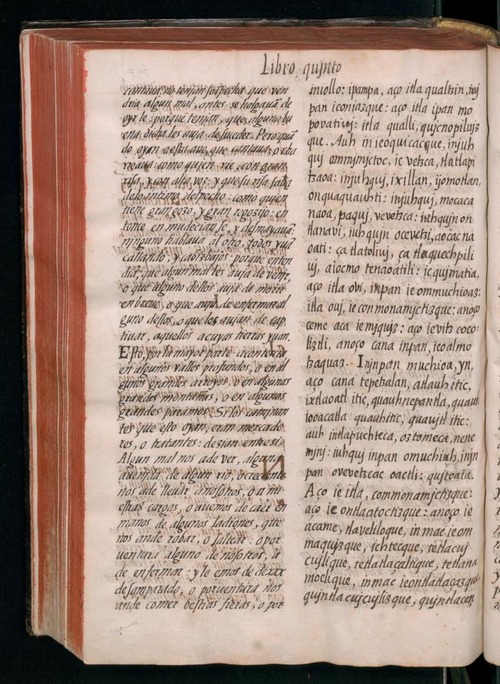 Libro quinto
caminār no tomauā sospecha que ven
dria algun mal, antes se holgauā de
oyrle: porque tenian, que alguna bu
ena dicha les auja de suceder. Pero quā
do oyan a esta aue, que cantaua, o cha
rreaua como quien rie con gran
risa, y con alta voz: y que su risa salia
de lo intimo del pecho: como quien
tiene gran gozo, y gran regozijo: en
tonce en mudecian se, y desmayauā
ninguno hablaua al otro, todos yuā
callando, y cabizbajos: porque enten
dian que algun mal les auja de venjr,
o que alguno dellos auja de morir
en breue, o que auja de enfermar al
guno dellos, o que los aujan de cap
tiuar, aquellos a cuyas tierras yuan.
Esto, por la mayor parte acontecia
en algunos valles profundos, o en al
gunos grandes arroyos, o en algunas
grandes montañas, o en algunos
grandes paramos. Si los caminan
tes que esto oyan, eran mercade
res, o tratantes: dezian entre si
Algun mal nos a de venir, alguna
auenida de algun rio, o creciente
nos a de lleuar a nosotros, o a nue
stras cargas, o auemos de caer en
manos de algunos ladrones, que
nos an de robar, o saltear: o por
uentura alguno de nosotros, a
de enfermar: y le emos de dexar
desamparado, o por uentura nos
an de comer bestias fieras, o por
iniollo: ipampa, aço itla qualtzin, toj
pan iconiazque: aço itla ipan mo
povativj: itla qualli, qujcnopilujz
que. Auh in icoquicacque, injuh
quj ommjmjctoc, ic vetzca, tlatlapi
tzaoa: injuhquj, ixillan, ijomotlan,
onquaquauhti: injuhquj, mocaca
naoa, paquj, vevetzca: iuhqujn on
tlanavi, iuhqujn ocevetzi, aocac na
oati: ça tlatolivj, ça tlaquechpili
uj, aiocmo tenaoatilti: ic qujmatia,
aço itla obi, inpan ie ommuchioaz:
itla ouj, ie conmonamjctizque: anoço
ceme aca ie mjqujz: aço ievitz coco
liztli, anoço cana inpan, icoalmo
tzaquaz. Injnpan muchioa, yn,
aço cana tepetzalan, atlauhitic,
ixtlaoatl itic, quauhnepantla, quauh
iooacatla quauhitic, quaujtl itic:
auh intlapuchteca, oztomeca, nene
mjnj: iuhquj inpan omuchiuh, injn
pan ovevetzcac oactli: qujtoaia.
Aço ie itla, commonamjctizque:
aço ie ontlaatoctizque: anoço ie
acame, tlavelilоque, in mac ieom
maqujzque, ichtecque, tetlacuj
cujlique, tetlatlaçaltique, tetlana
moelique, in mac ieontlatlaçazque
qujntlacujcujlizque, qujntlacen